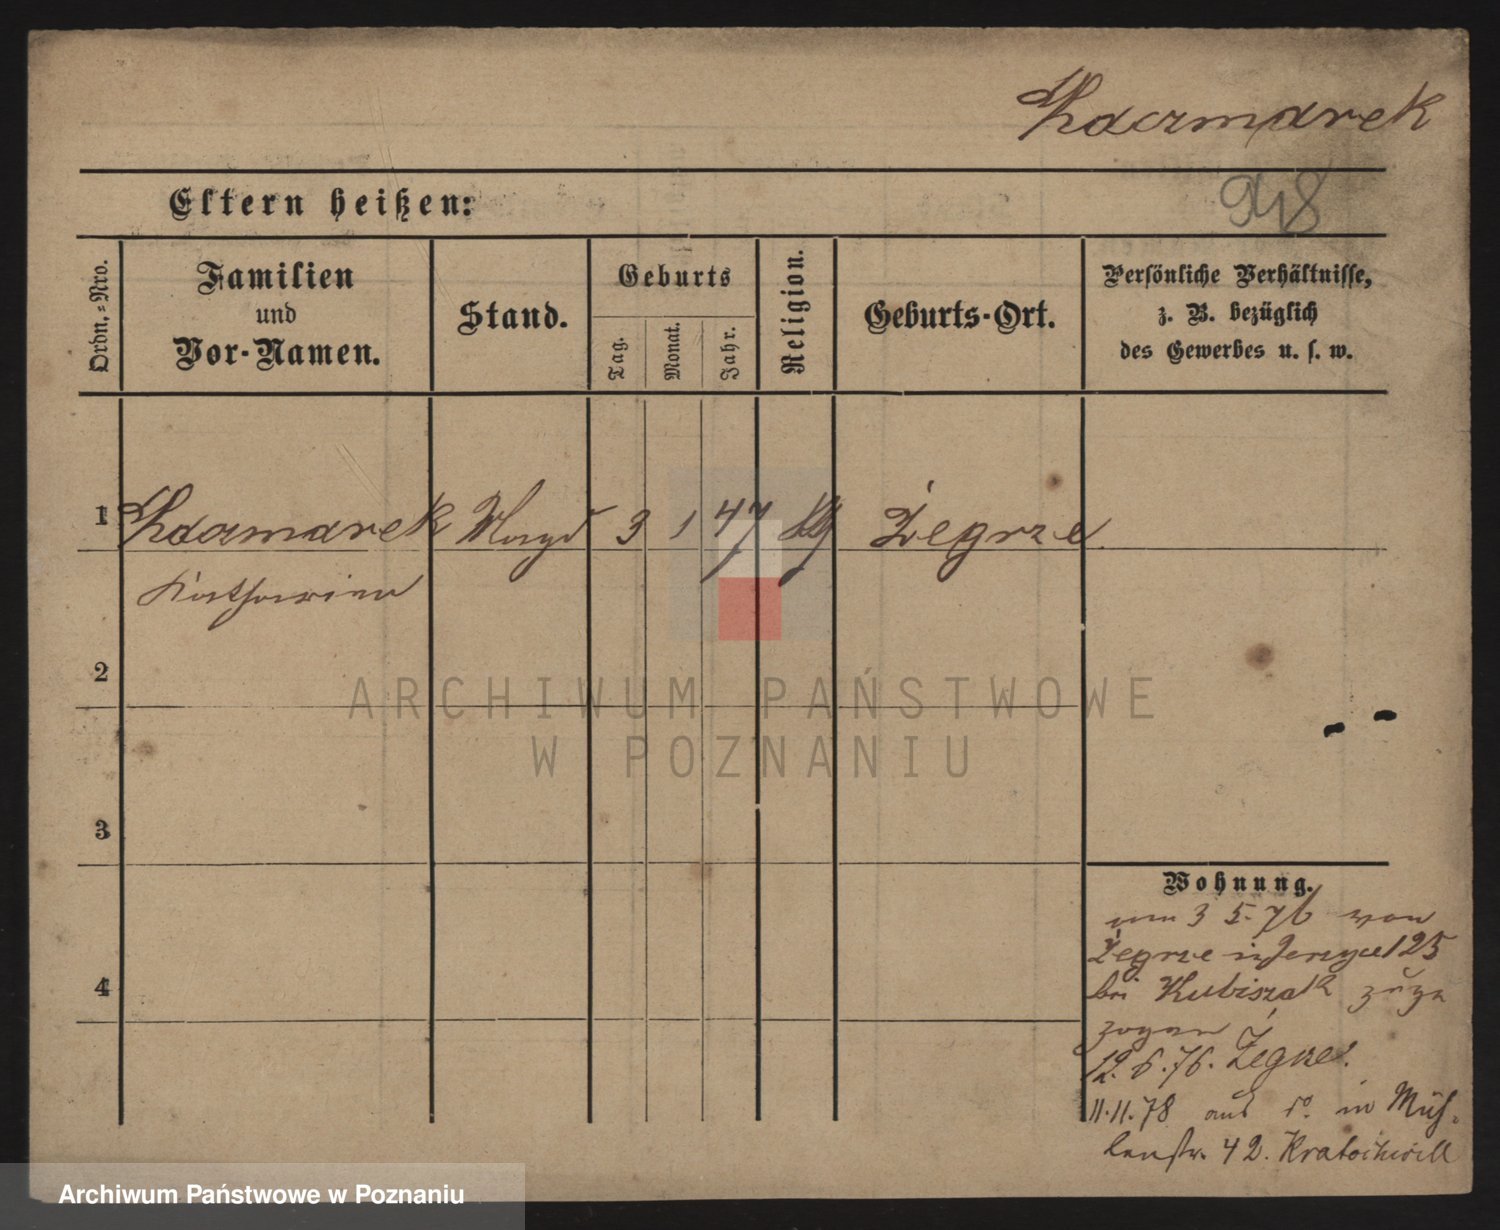 Kaczmarek
948
Eltern heißen:
Ordn.-Nro.
Familien
und
Vor-Namen.
Stand.
Geburts
Tag.
Monat.
Jahr.
Religion.
Geburts-Ort.
Persönliche Verhältnisse,
z. B. bezüglich
des Gewerbes u. s. w.
1 Kaczmarek Magd 3 1 47 Żegrze
Katharina
2
3
4
Wohnung.
am 3 5. 76 von
Żegrze in Jerzyce 125
bei Kubiszak zuge
zogen
12. 6. 76. Żegrze.
11.11.78 aus do. in Müh-
lenstr. 42. Kratochwill
ARCHIWUM PAŃSTWOWE
W POZNANIU
Archiwum Państwowe w Poznaniu